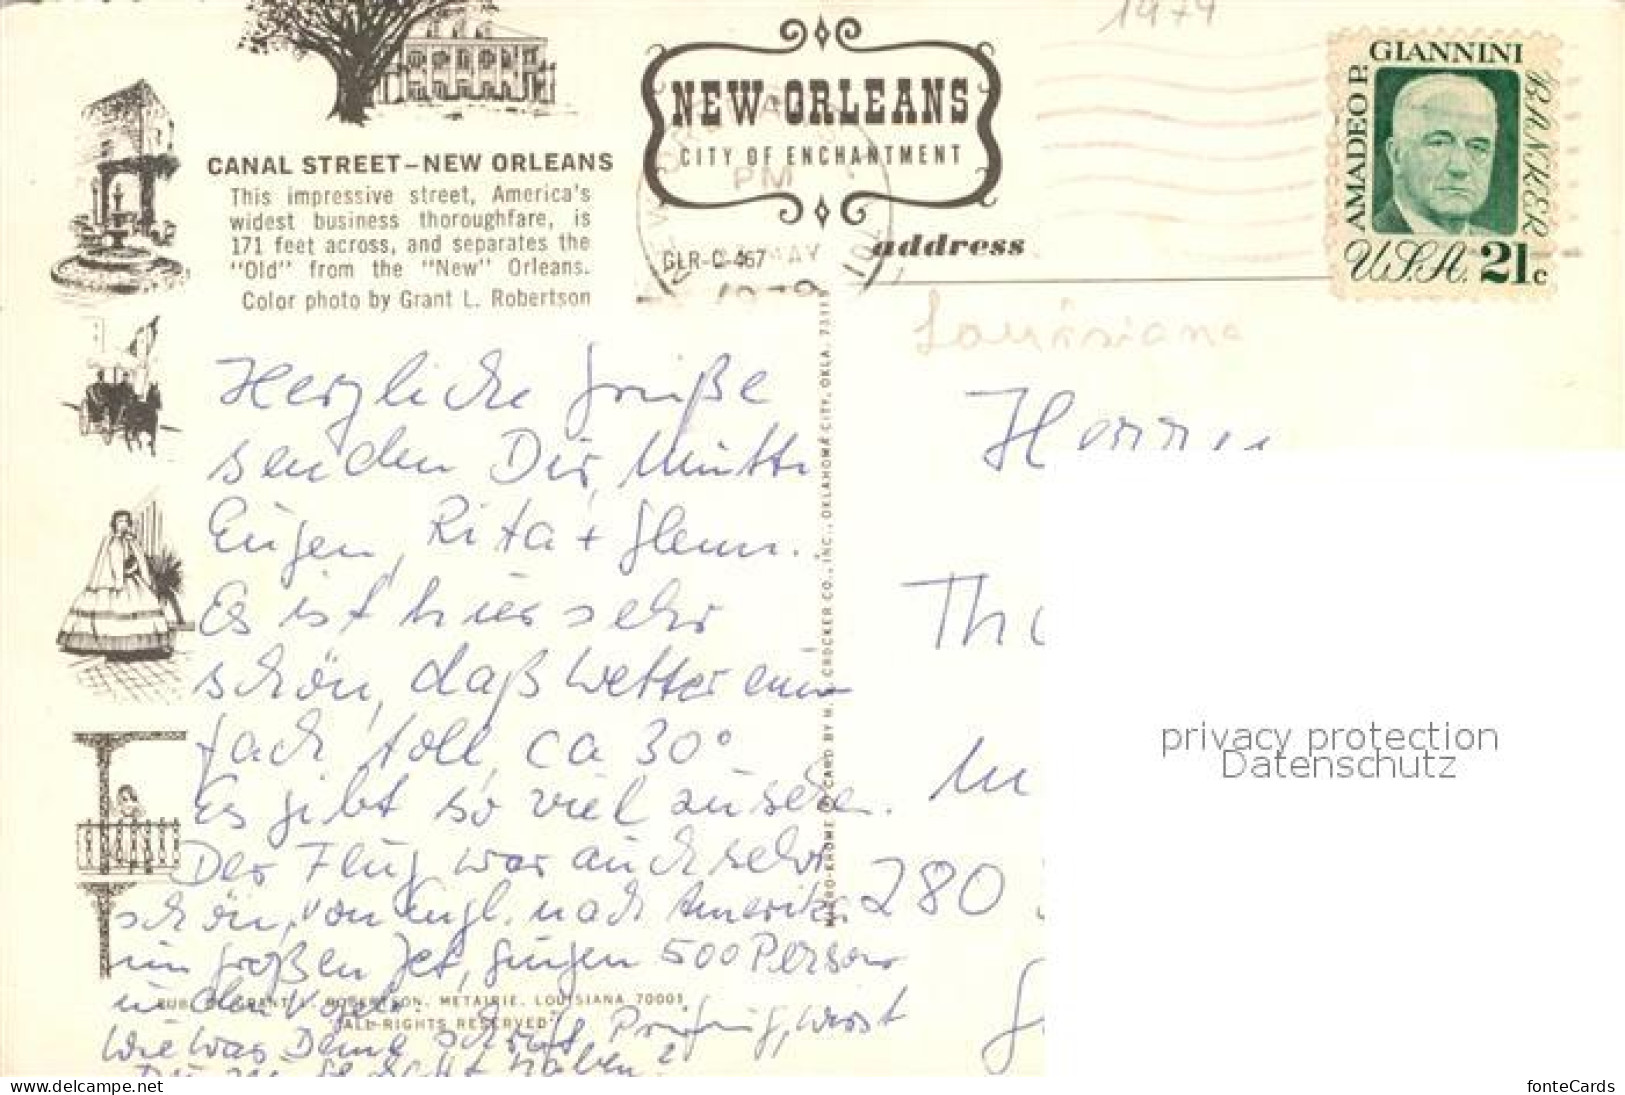 1979
NEW ORLEANS
CITY OF ENCHANTMENT
PM
MAY
1979
AMADEO P. GIANNINI BANKER
U.S.A. 21c
CANAL STREET—NEW ORLEANS
This impressive street, America's
widest business thoroughfare, is
171 feet across, and separates the
"Old" from the "New" Orleans.
Color photo by Grant L. Robertson
GLR-C-467
address
Louisiana
Herzliche Grüße
senden Dir, Mutti
Eugen, Rita + Glenn.
Es ist hier sehr
schön, daß Wetter ein
fach toll, ca 30°
Es gibt so viel zu sehen.
Der Flug war auch sehr
schön, von Engl. nach Amerika
im großen Jet, gingen 500 Person
in den Vogel.
Wie war Deine schriftl. Prüfung, wirst
Du zu gehabt haben?
MACRO-KROME CARD BY H. S. CROCKER CO., INC., OKLAHOMA CITY, OKLA. 73115
PUB. BY GRANT L. ROBERTSON, METAIRIE, LOUISIANA 70001
"ALL RIGHTS RESERVED"
Herrn
Th
280
privacy protection
Datenschutz
picclick.de
fonteCards